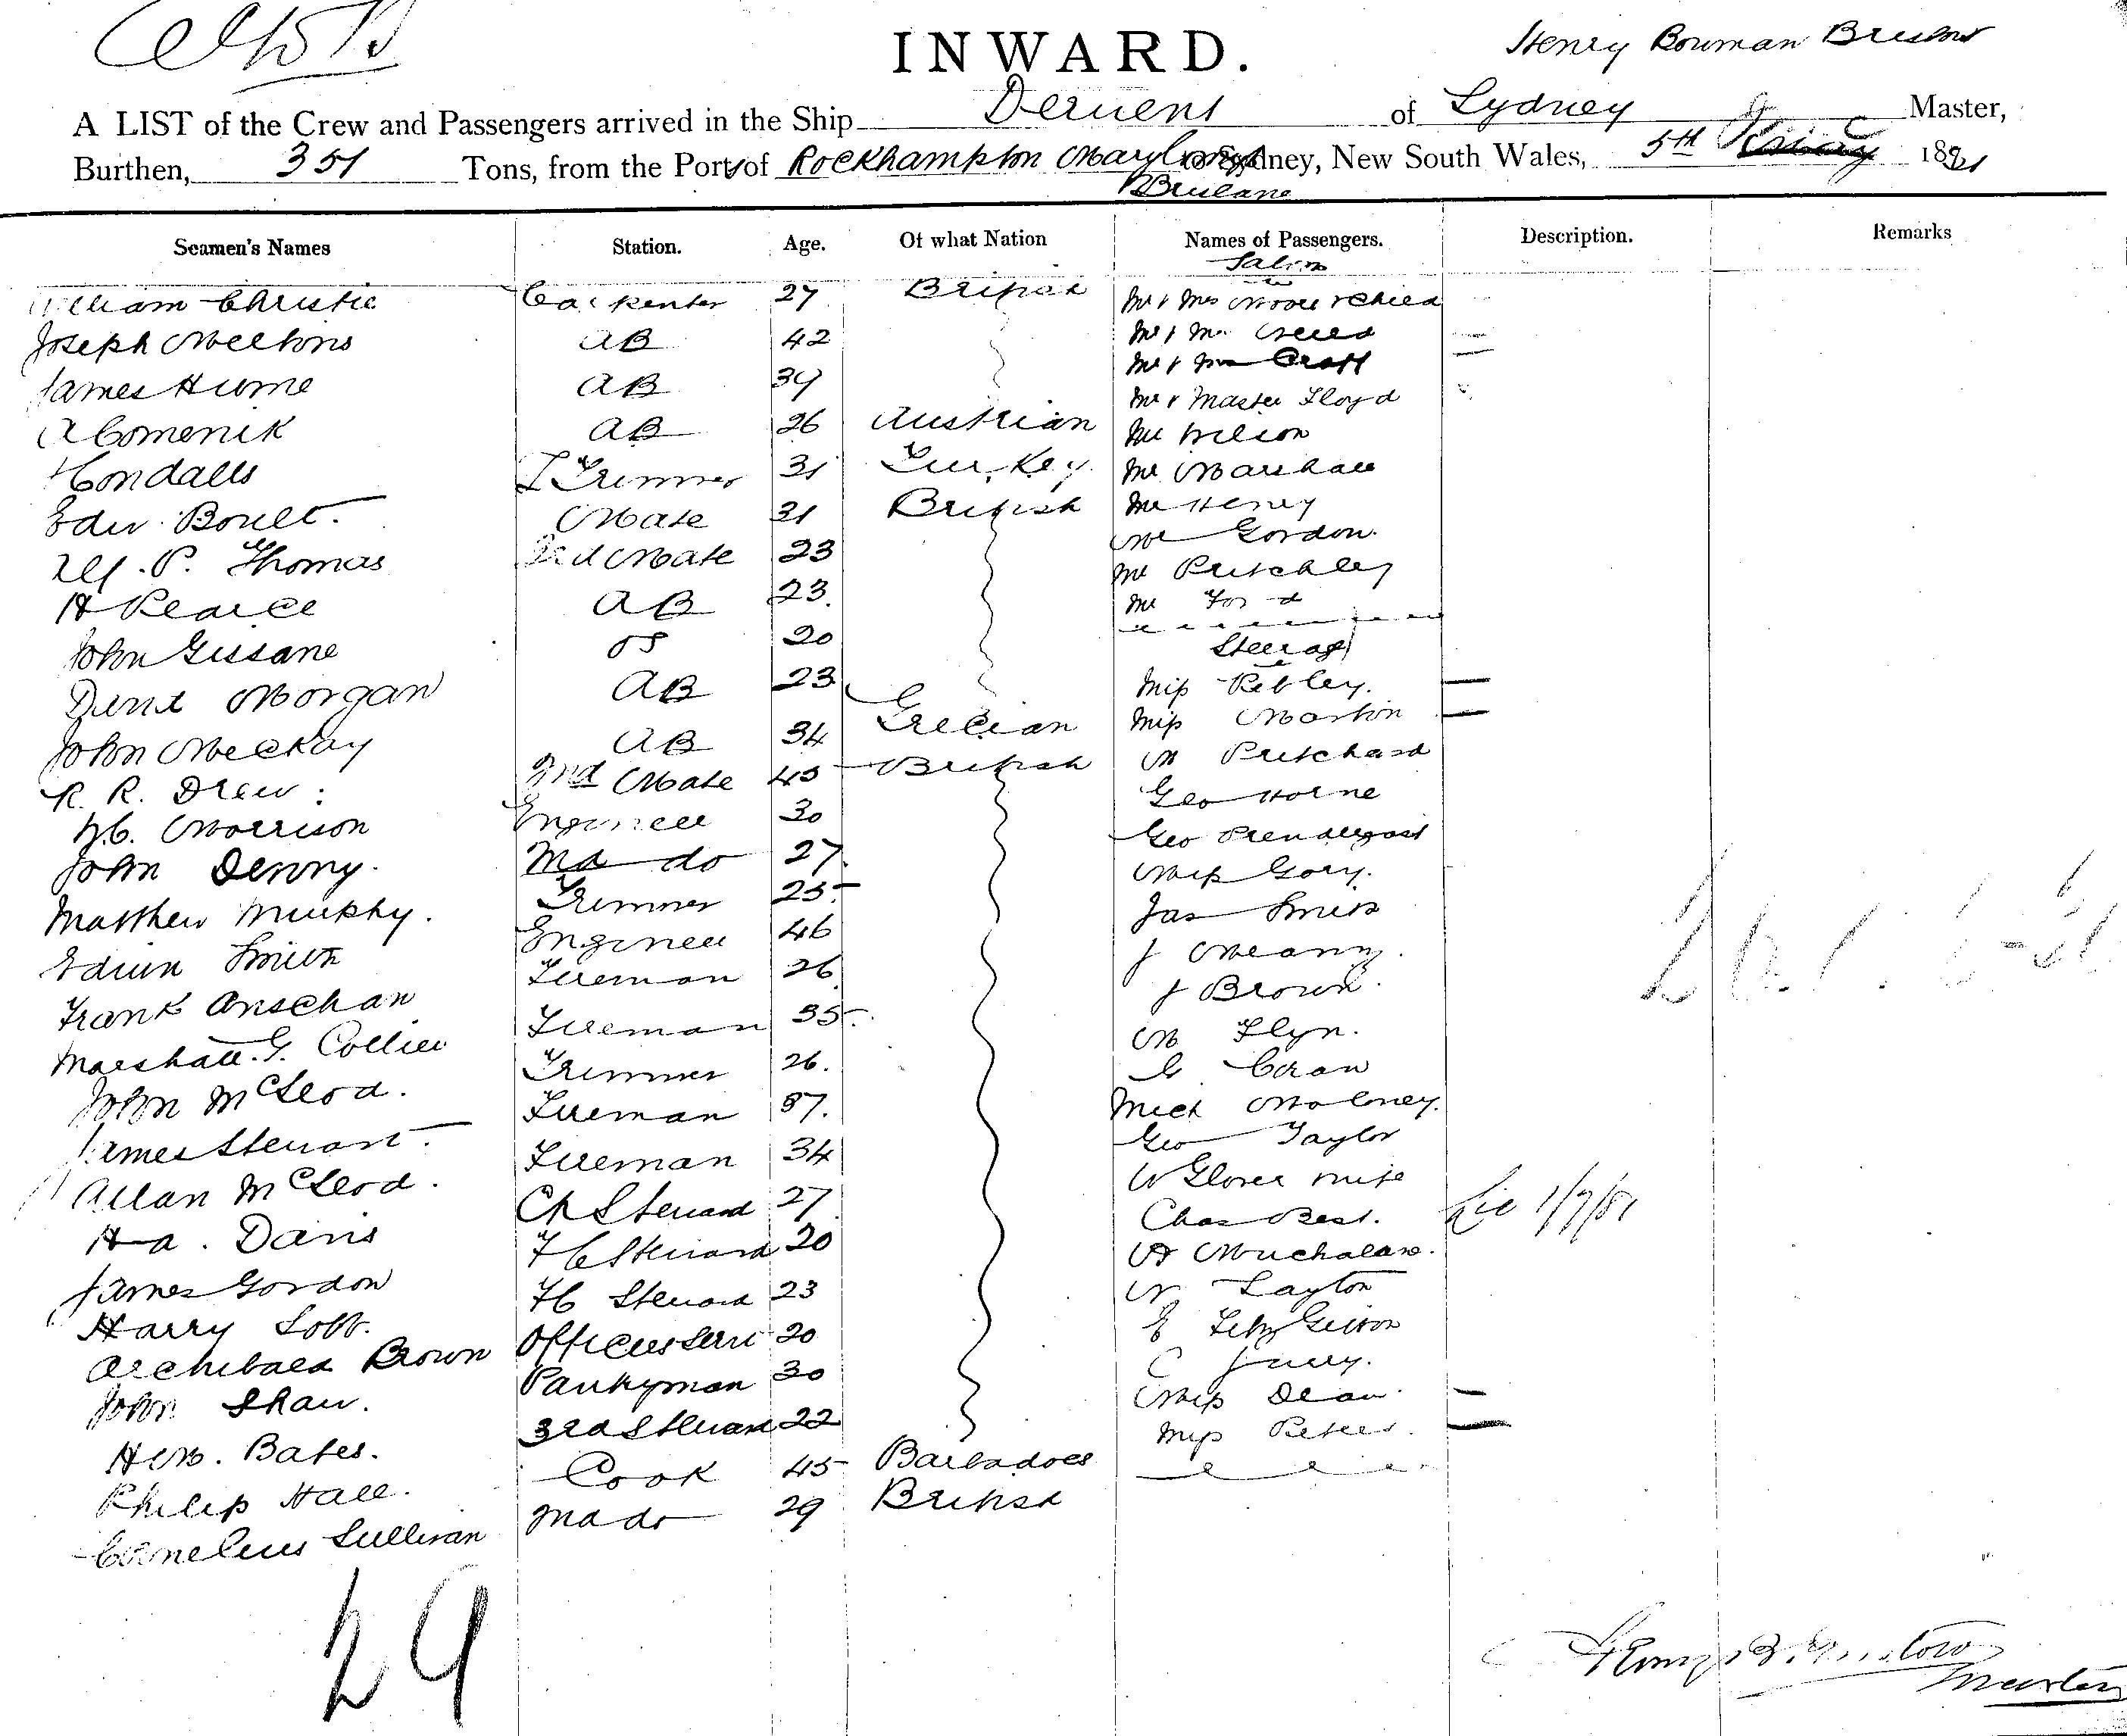 INWARD.
Henry Bowman Bristow
A LIST of the Crew and Passengers arrived in the Ship Derwent of Sydney Master,
Burthen, 351 Tons, from the Port of Rockhampton to Sydney, New South Wales, 5th 1881
Brisbane
Seamen's Names Station. Age. Of what Nation Names of Passengers. Description. Remarks
Saloon
William Christie Carpenter 27 British Mr & Mrs Moore & Child
Joseph AB 42 Mr & Mrs
James Hume AB 39 Mr & Mrs
A Comenik AB 26 Austrian Mr & Master Lloyd
Mr Wilson
Hondalls Trimmer 31 Turkey Mr Marshall
Edw. Boult. Mate 31 British Mr Henry
Mr Gordon.
P. Thomas 3rd Mate 23 Mr Pritchley
H Pearce AB 23. Mr Ford
John Gissane OS 20 Steerage
Morgan AB 23 Miss Pebley.
Miss Martin
John McKay AB 34 Grecian M Pritchard
R. R. Drew 2nd Mate 45 British Geo Horne
Morrison Engineer 30 Geo Prendergast
John Denny. 2nd do 27 Miss Gory.
Matthew Murphy. Trimmer 25 Jas Smith
Edwin Smith Engineer 46 J Meany.
Frank Anschan Fireman 26 J Brown.
Marshall. G. Collier Fireman 35 M Flyn.
John McLeod. Trimmer 26. Coran
James Stewart Fireman 37. Mick Moloney.
Geo Taylor
Allan McLeod. Fireman 34 W Glover wife
H a. Davis Ch Steward 27 Chas Best. 1/7/81
James Gordon F C Steward 20
Harry Lobb. F C Steward 23 Layton
Archibald Brown Officers Serv 20 E Fitz Gibbon
John Shaw. Pantryman 30 C
Miss Dean.
Hen. Bates. 3rd Steward 22 Miss Peters.
Philip Hall. Cook 45 Barbadoes
Cornelius Sullivan 2nd do 29 British
29
Henry B. Bristow
Master